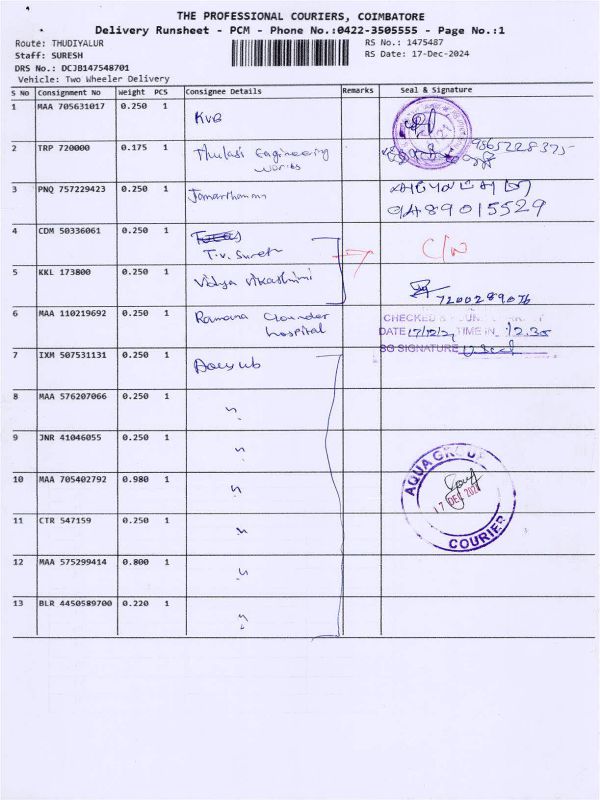 THE PROFESSIONAL COURIERS, COIMBATORE
Delivery Runsheet - PCM - Phone No.:0422-3505555 - Page No.:1
Route: THUDIYALUR
RS No.: 1475487
Staff: SURESH
RS Date: 17-Dec-2024
DRS No.: DCJB147548701
Vehicle: Two Wheeler Delivery
S No Consignment No Weight PCS Consignee Details Remarks Seal & Signature
1 MAA 705631017 0.250 1 KVB
2 TRP 720000 0.175 1 Thulasi Engineering works 9865228375
3 PNQ 757229423 0.250 1
9489015529
4 CDM 50336061 0.250 1 T.V. Suresh C/N
5 KKL 173800 0.250 1 Vidya Vikashini 7200289076
6 MAA 110219692 0.250 1 Ramana Gounder hospital
CHECKED &
DATE 17/12/2 TIME IN 12.30
SG SIGNATURE
7 IXM 507531131 0.250 1
8 MAA 576207066 0.250 1 "
9 JNR 41046055 0.250 1 "
10 MAA 705402792 0.980 1 "
AQUA GROUP
17 DEC 202
COURIER
11 CTR 547159 0.250 1 "
12 MAA 575299414 0.800 1 "
13 BLR 4450589700 0.220 1 "